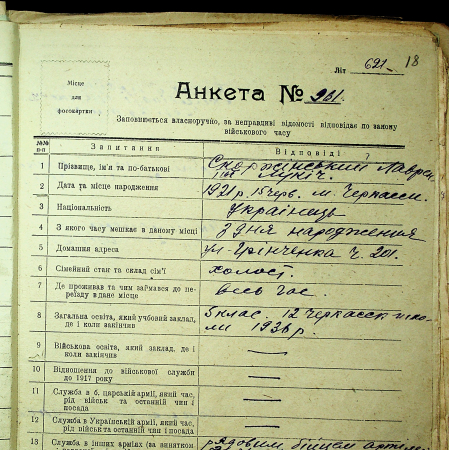 Літ 621 18
Місце
для
фотокартки
Анкета № 261.
Заповнюється власноручно, за неправдиві відомості відповідає по закону
військового часу
№№
п-п
Запитання
Відповіді
1 Прізвище, ім'я та по-батькові
Лукіч.
2 Дата та місце народження 1921 р. 15 черв. м. Черкасси.
3 Національність Українець
4 З якого часу мешкає в даному місці З дня народження
5 Домашня адреса ул. Грінченка ч. 201.
6 Сімейний стан та склад сім'ї холост.
7 Де проживав та чим займався до пе-
реїзду в дане місце весь час.
8 Загальна освіта, який учбовий заклад,
де і коли закінчив 5 клас. 12 Черкасск. шко-
ли 1936 р.
9 Військова освіта, який заклад, де і
коли закінчив —
10 Відношення до військової служби
до 1917 року —
11 Служба в б. царській армії, який час,
рід військ та останній чин і
посада —
12 Служба в Українській армії, який час,
рід військ та останній чин і посада —
13 Служба в інших арміях (за винятком рядовим бійцем